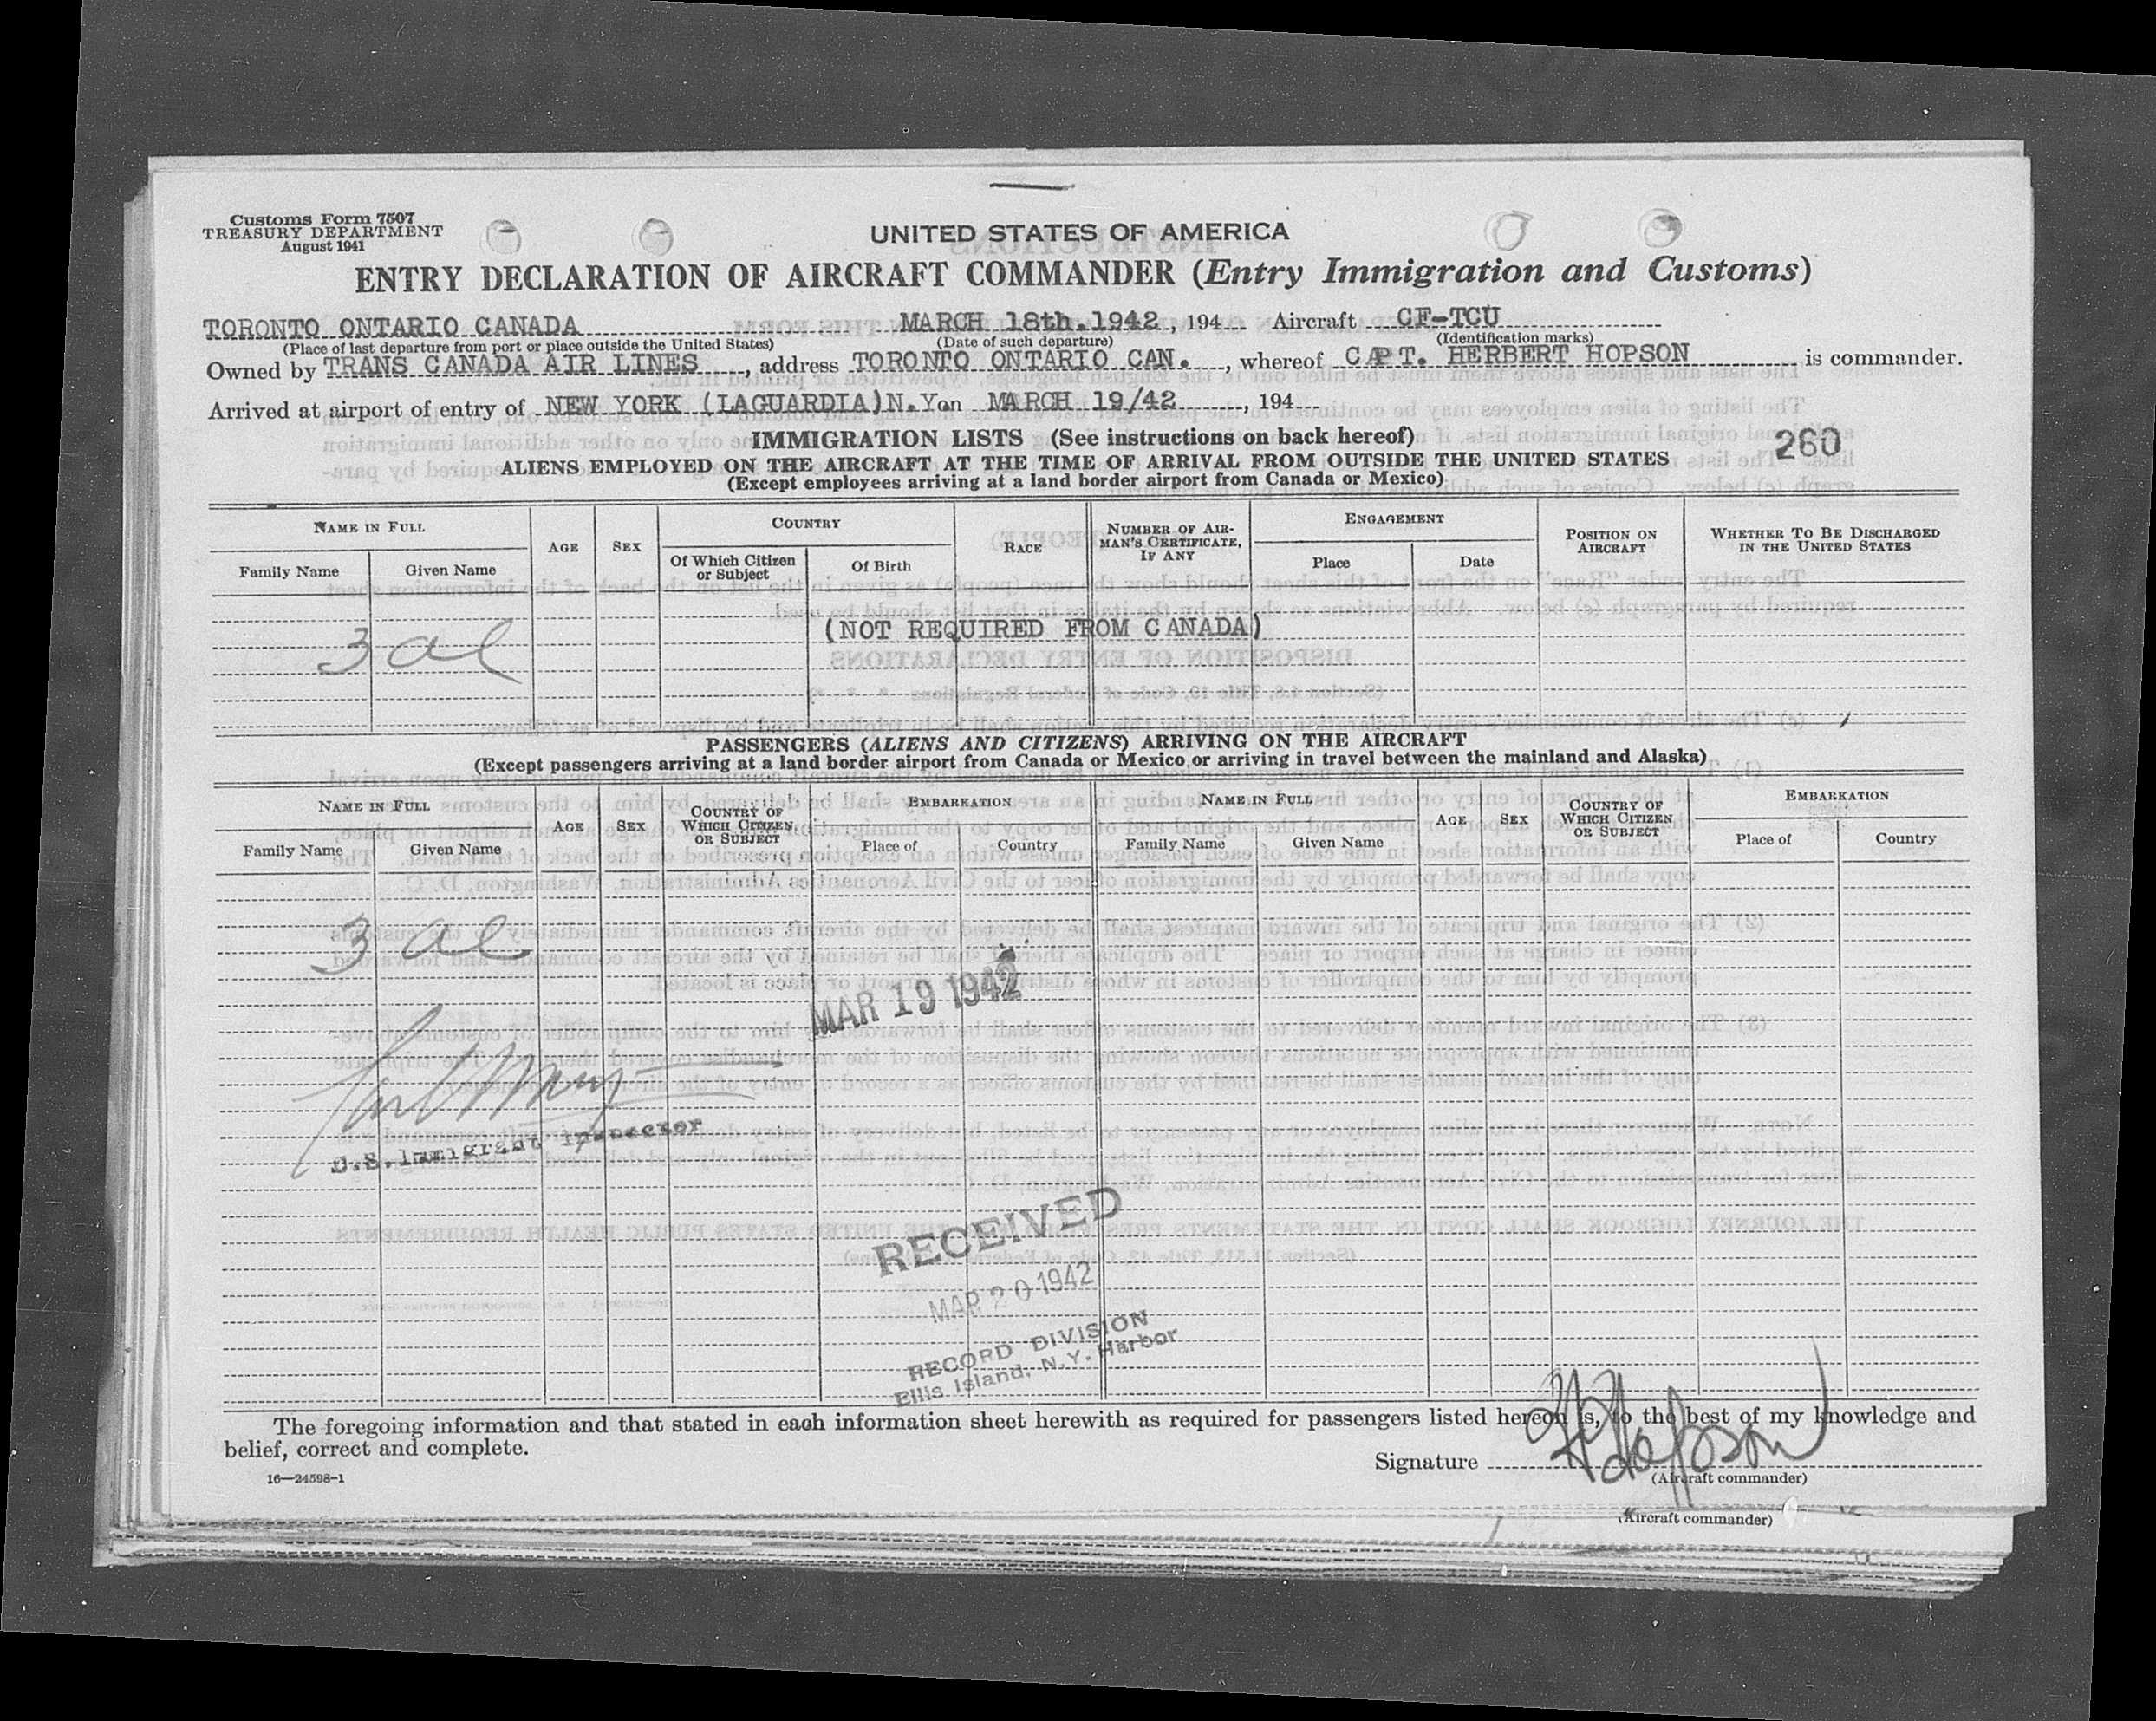 Customs Form 7507
TREASURY DEPARTMENT
August 1941
UNITED STATES OF AMERICA
ENTRY DECLARATION OF AIRCRAFT COMMANDER (Entry Immigration and Customs)
TORONTO ONTARIO CANADA MARCH 18th.1942, 194 Aircraft CF-TCU
(Place of last departure from port or place outside the United States) (Date of such departure) (Identification marks)
Owned by TRANS CANADA AIR LINES, address TORONTO ONTARIO CAN., whereof CAPT. HERBERT HOPSON is commander.
Arrived at airport of entry of NEW YORK (LAGUARDIA)N.Y. on MARCH 19/42, 194
IMMIGRATION LISTS (See instructions on back hereof)
260
ALIENS EMPLOYED ON THE AIRCRAFT AT THE TIME OF ARRIVAL FROM OUTSIDE THE UNITED STATES
(Except employees arriving at a land border airport from Canada or Mexico)
NAME IN FULL
Family Name Given Name
AGE
SEX
COUNTRY
Of Which Citizen or Subject
Of Birth
RACE
NUMBER OF AIRMAN'S CERTIFICATE, IF ANY
ENGAGEMENT
Place Date
POSITION ON AIRCRAFT
WHETHER TO BE DISCHARGED IN THE UNITED STATES
(NOT REQUIRED FROM CANADA)
3 al
PASSENGERS (ALIENS AND CITIZENS) ARRIVING ON THE AIRCRAFT
(Except passengers arriving at a land border airport from Canada or Mexico or arriving in travel between the mainland and Alaska)
NAME IN FULL
Family Name Given Name
AGE
SEX
COUNTRY OF WHICH CITIZEN OR SUBJECT
EMBARKATION
Place of Country
NAME IN FULL
Family Name Given Name
AGE
SEX
COUNTRY OF WHICH CITIZEN OR SUBJECT
EMBARKATION
Place of Country
3 al
MAR 19 1942
U.S. Immigrant Inspector
RECEIVED
MAR 20 1942
RECORD DIVISION
Ellis Island, N.Y. Harbor
The foregoing information and that stated in each information sheet herewith as required for passengers listed hereon is, to the best of my knowledge and
belief, correct and complete.
Signature H Hopson
(Aircraft commander)
16—24598-1
(Aircraft commander)